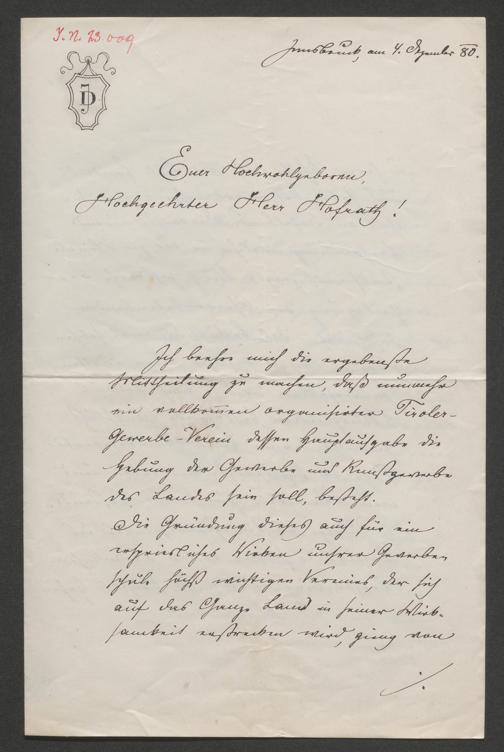 I. N. 23.009
Innsbruck, am 4. Dezember 80.
JD
Euer Hochwohlgeboren,
Hochgeehrter Herr Hofrath!
Ich beehre mich die ergebenste
Mittheilung zu machen, daß nunmehr
ein vollkommen organisirter Tiroler-
Gewerbe-Verein dessen Hauptaufgabe die
Hebung der Gewerbe und Kunstgewerbe
des Landes sein soll, besteht.
Die Gründung dieses auch für ein
ersprießliches Wirken unsrer Gewerbe-
schule höchst wichtigen Vereines, der sich
auf das Ganze Land in seiner Wirk-
samkeit erstrecken wird, ging von
./.